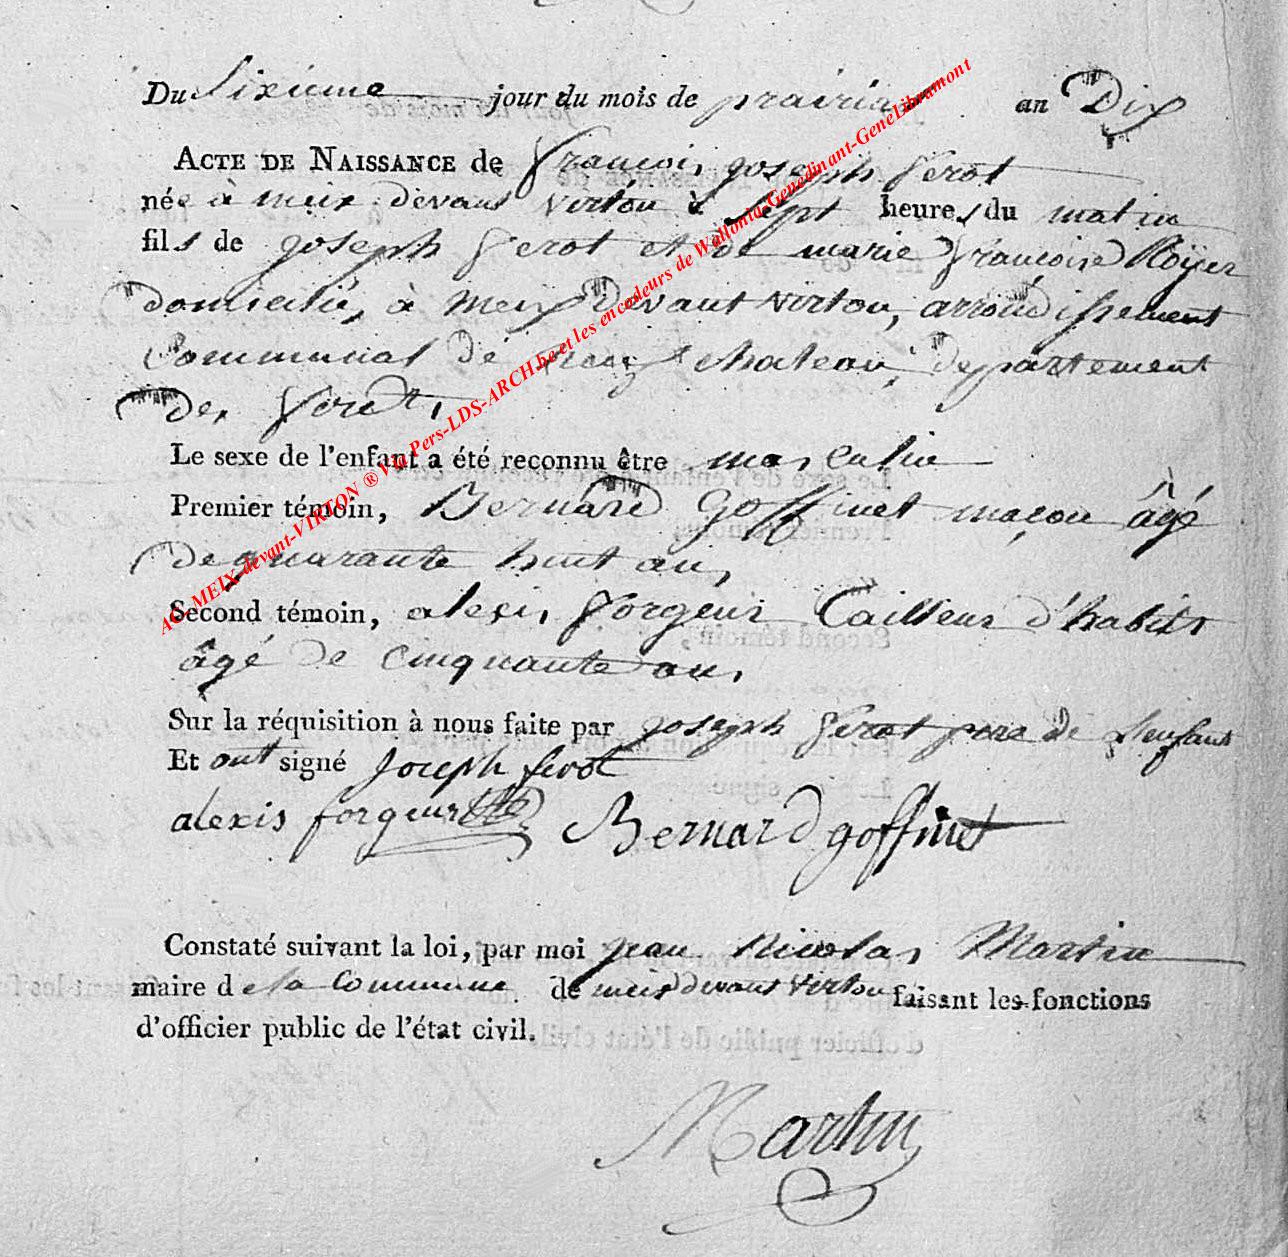 Du Sixieme jour du mois de prairial an Dix
ACTE DE NAISSANCE de François joseph Gerot
née à meix devant virton à Sept heures du matin
fils de joseph Gerot et de marie françoise Royer
domiciliés à Meix devant virton, arrondissement
Communal de neufchateau, departement
des foret,
Le sexe de l'enfant a été reconnu être masculin
Premier témoin, Bernard Goffinet maçon âgé
de quarante huit ans
Second témoin, alexis forgeur Tailleur d'habits
âgé de cinquante ans
Sur la réquisition à nous faite par joseph Gerot pere de l'enfant
Et ont signé Joseph
alexis forgeur Bernard goffinet
Constaté suivant la loi, par moi jean Nicolas Martin
maire de la Commune de meix devant virton faisant les fonctions
d'officier public de l'état civil.
Martin
AC-MEIX-devant-VIRTON ® Via Pers-LDS-ARCH.be et les encodeurs de Wallonia-Genedinant-GeneLibramont